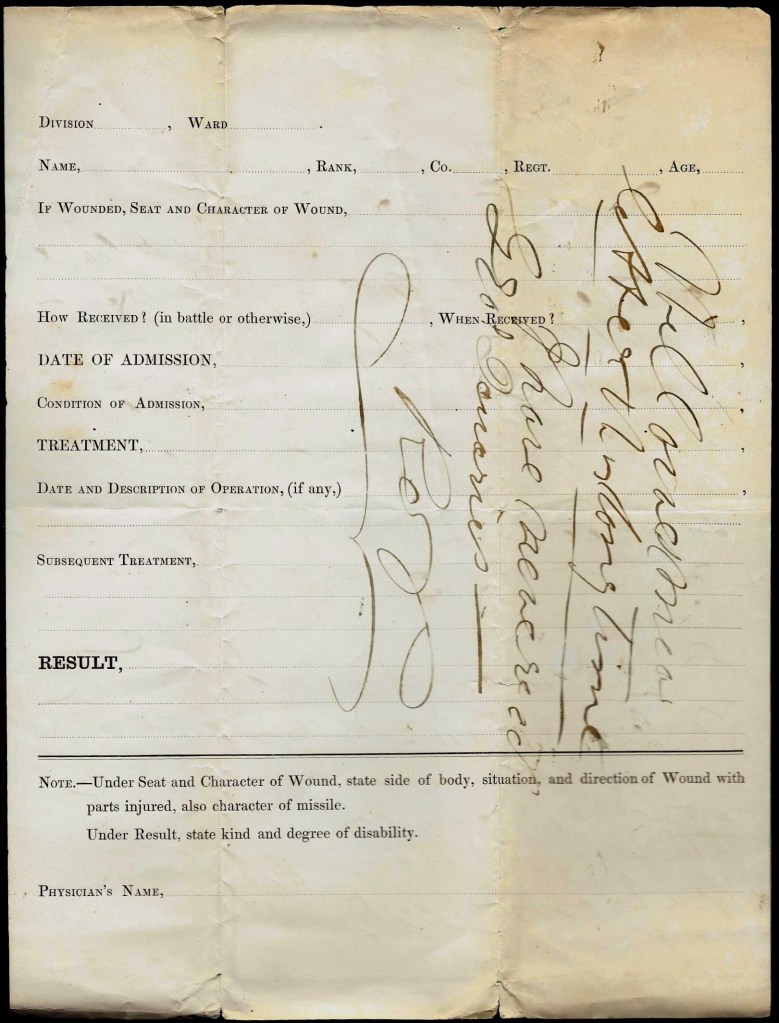 Division , Ward .
Name, , Rank, , Co. , Regt. , Age,
If Wounded, Seat and Character of Wound,
How Received? (in battle or otherwise,) , When Received? ,
DATE OF ADMISSION, ,
Condition of Admission, ,
TREATMENT, ,
Date and Description of Operation, (if any,) ,
Subsequent Treatment,
RESULT,
Note.—Under Seat and Character of Wound, state side of body, situation, and direction of Wound with
parts injured, also character of missile.
Under Result, state kind and degree of disability.
Physician's Name,
long time
have